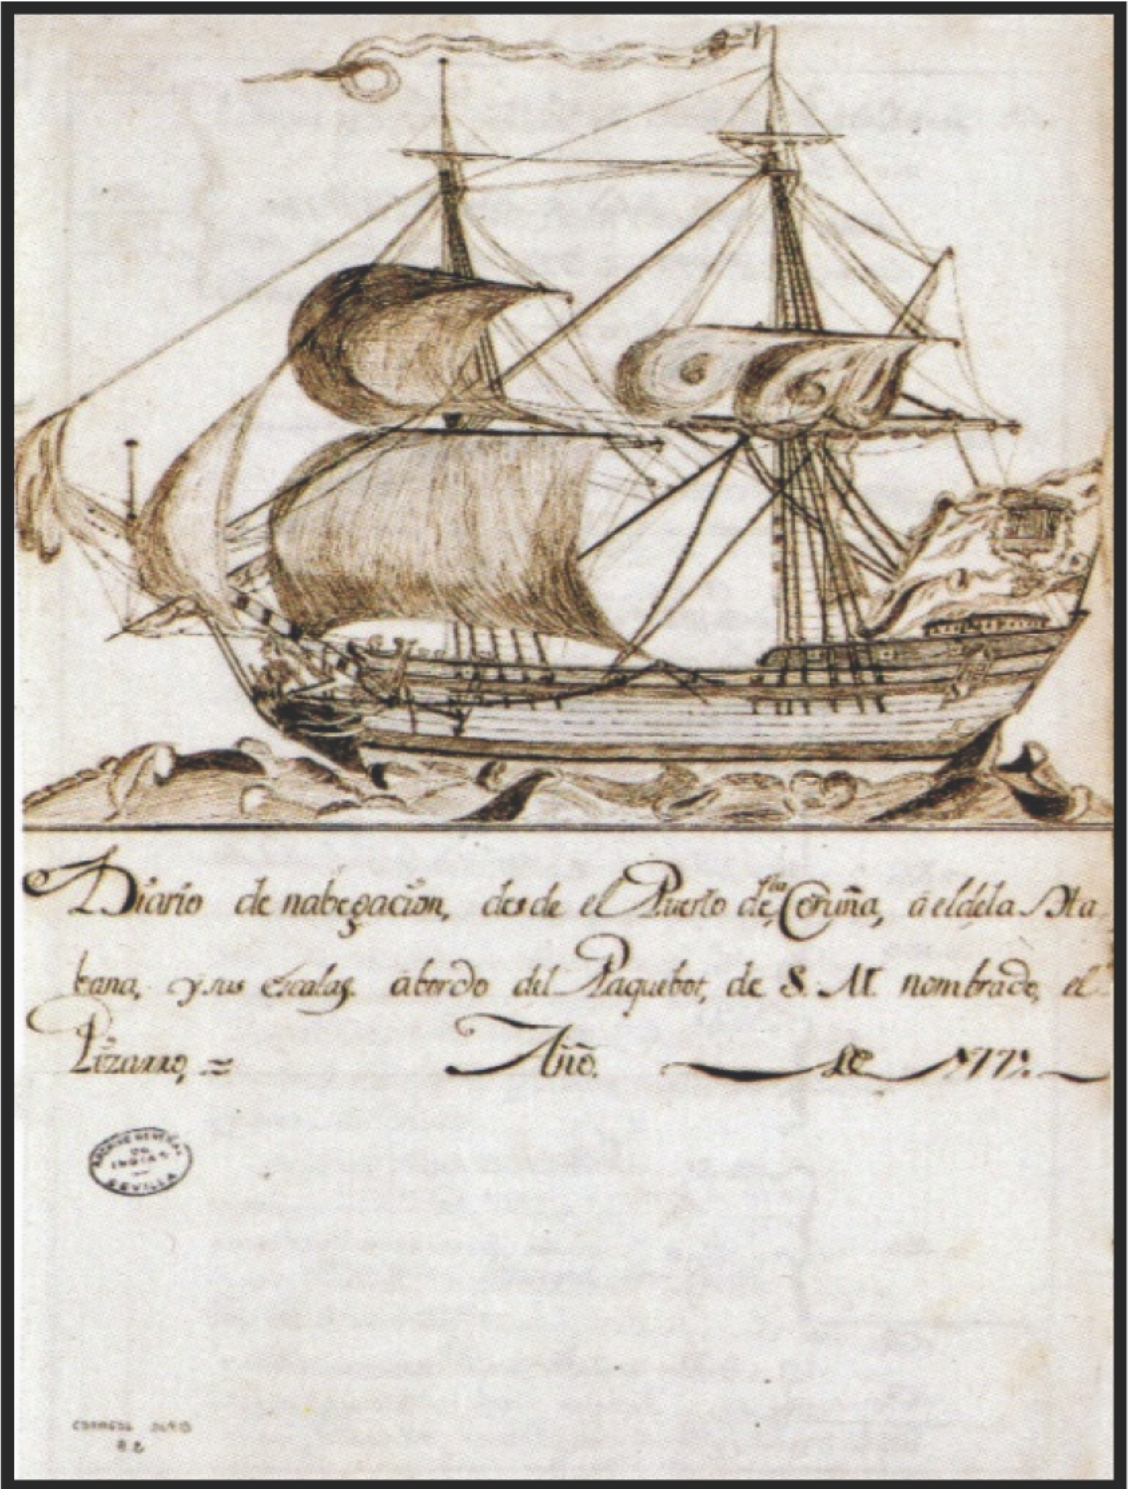 Diario de nabegacion, desde el Puerto de la Coruña, a el de la Ha
bana, y sus escalas abordo del Paquebot, de S. M. nombrado, el
Pizarro, =  Año. de
ARCHIVO GENERAL
DE
INDIAS
SEVILLA
CORREOS